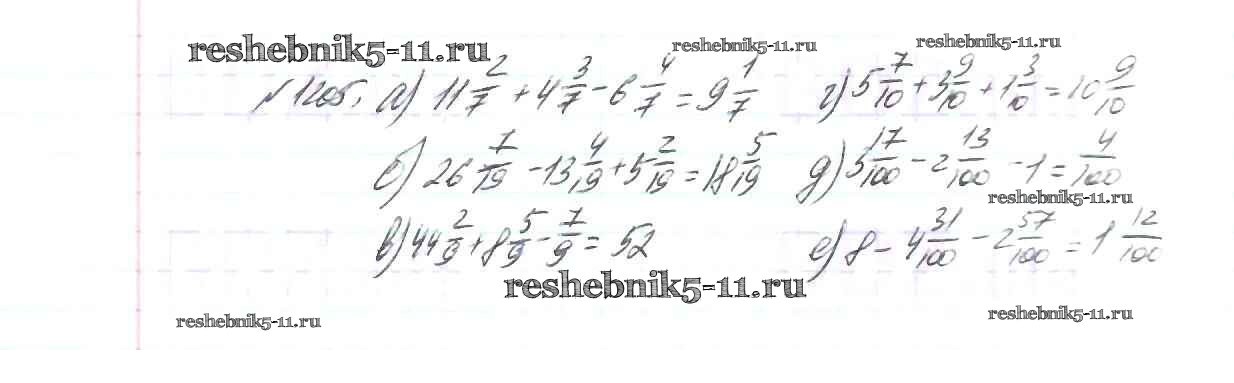 reshebnik5-11.ru reshebnik5-11.ru reshebnik5-11.ru
№1205. а) 11 2/7 + 4 3/7 - 6 4/7 = 9 1/7 г) 5 7/10 + 3 9/10 + 1 3/10 = 10 9/10
б) 26 7/19 - 13 4/19 + 5 2/19 = 18 5/19 д) 3 17/100 - 2 13/100 - 1 = 4/100
reshebnik5-11.ru
в) 44 2/9 + 8 5/9 - 7/9 = 52 е) 8 - 4 31/100 - 2 57/100 = 1 12/100
reshebnik5-11.ru
reshebnik5-11.ru reshebnik5-11.ru